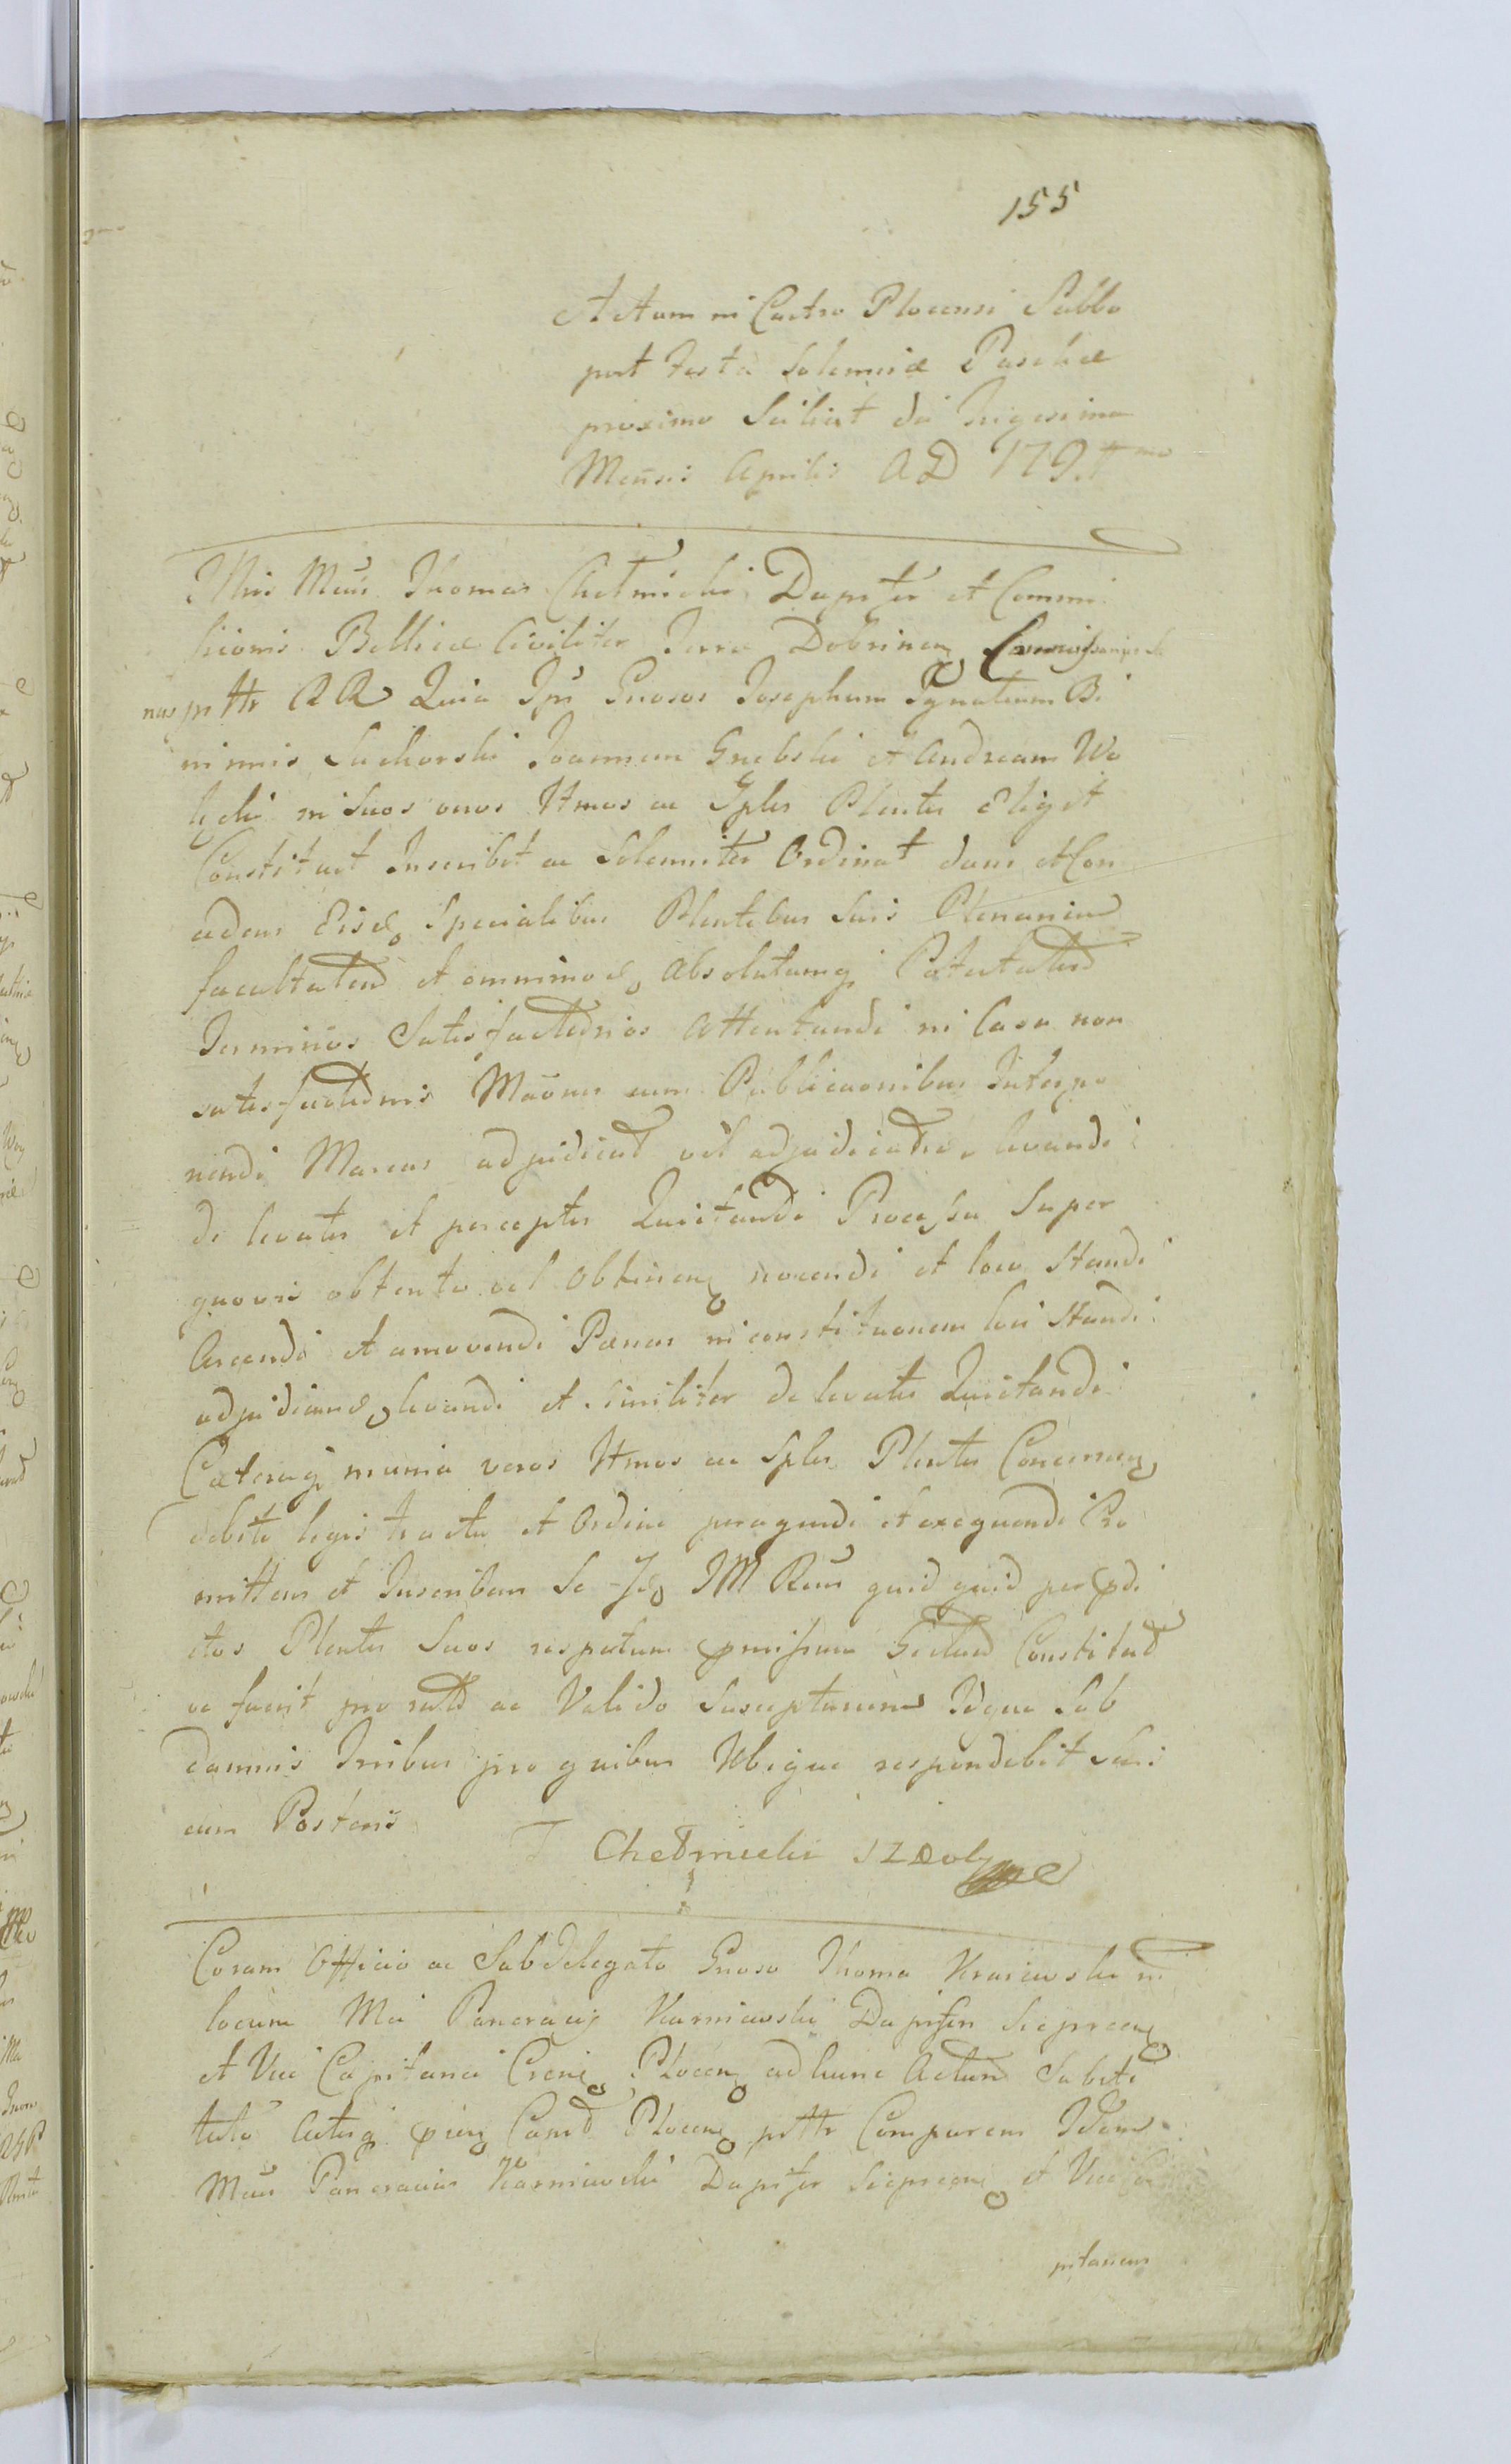 155
Actum in Castro Plocensi Sabbo
post Festa Solemnia Paschae
proximo Scilicet die Trigesima
Mensis Aprilis AD 1791mo
Mus Thomas Chełmicki Dapifer et Commi
sionis Bellicae Civilis Terrae Dobrinen
ptr RR Quia Ipse Gnosos Josephum Ignatium Bi
nimis Suchorski Joannem Grebski et Andream Wo
łęcki in Suos veros ltmos ac Sples Plentes Eligit
Constituit Inscribit ac Solemniter Ordinat dans et Con
cedens Eisd Specialibus Plentibus Suis Plenariam
facultatem et omnimod absolutamq Potestatem
Terminos Satisfactionis Attentandi in Casu non
satisfactionis cum Publicaonibus Interpo
nendi Marcas adjudicat vel adjudicatio levandi
de levatis et perceptis Quietandi Processu Super
quovis obtento vel Obtinen novendi et loco Standi
Arcendi et amovendi Poenas in constituaonem loci Standi
adjudicand levandi et similiter de levatis Quietandi
Caeteraq munia veros ltmos ac Sples Plentes Concernen
debito legis tractu et Ordine peragendi et exequendi Pro
mittens et Inscribens Se Id JM Rum quid quid per pdi
ctos Plentes Suos respectum pmissum Constitut
ac fuerit pro rato ac Valido Suscepturum Idque Sub
damnis Trribus pro quibus Ubique respondebit Sui
cum Posteris
T Chełmicki
Coram Officio ac Subdelegato Gnoso Thoma Krasiewski in
locum Mci Pancracij Karniewski Dapiferi Sieprcen
et Vice Capitanei Crens Plocen ad hunc Actum Substi
tuto Actisq pnen Cast Plocen ptr Comparens Idem
Mcus Pancracius Karniewski Dapifer Sieprcen et Vice Ca
pitaneus